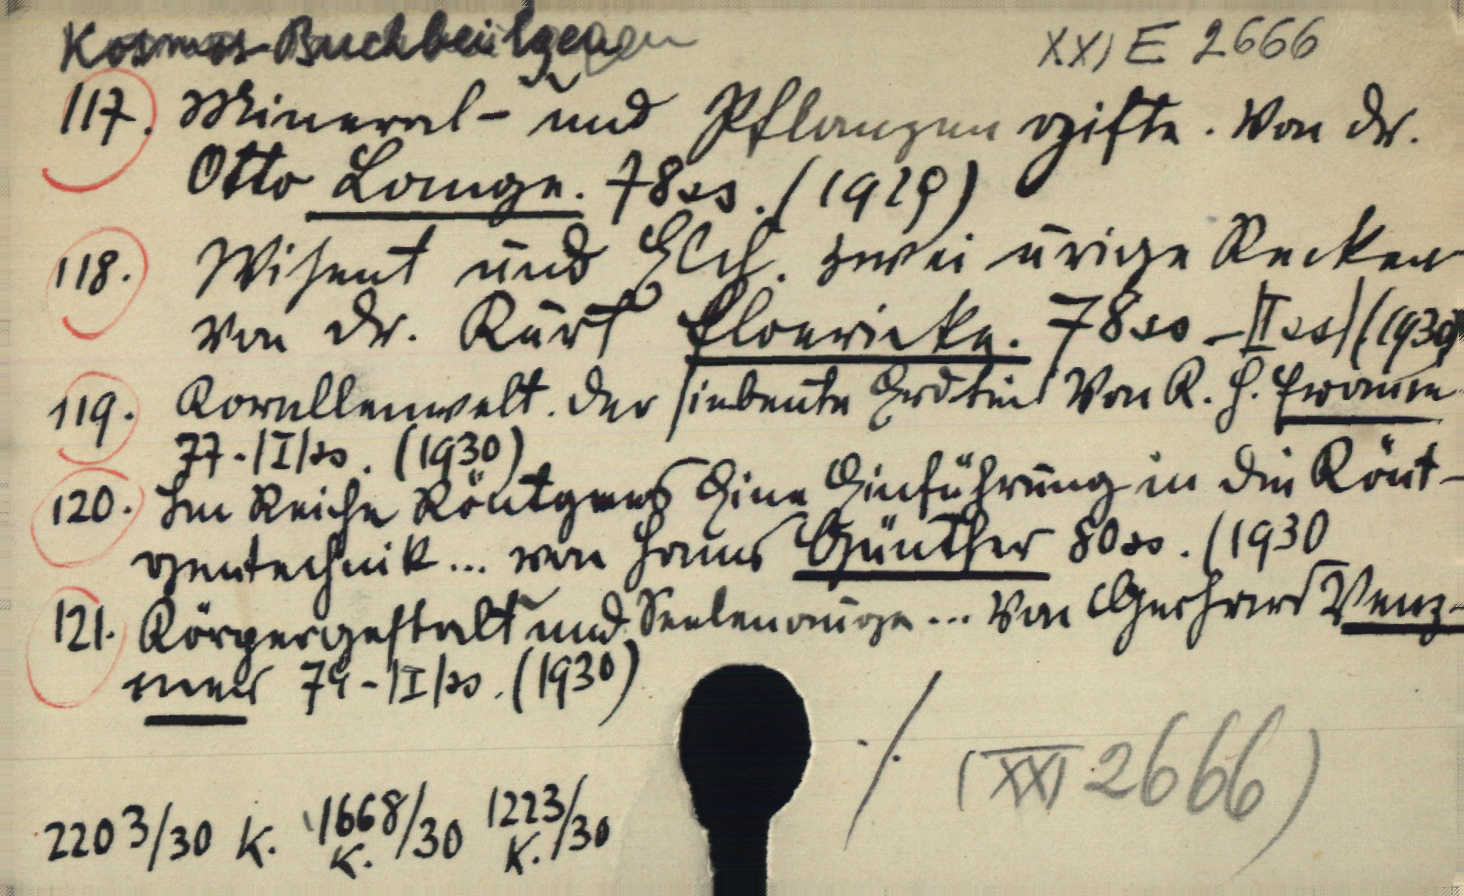 Kosmos-Buchbeilagen
XXI E 2666
117. Mineral- und Pflanzengifte. Von Dr.
Otto Lange. 78 ss. (1929)
118. Wisent und Elch. Zwei urige Recken
von Dr. Kurt Floericke. 78 ss -|II ss| (1930)
119. Korallenwelt. Der siebente Erdteil Von K. H. Francé
77-|I|ss. (1930)
120. Im Reiche Röntgens Eine Einführung in die Rönt-
gentechnik... von Hanns Günther 80 ss. (1930
121. Körpergestalt und Seelenauge... Von Gerhard Venz-
mer 79-|I|ss. (1930)
./.
(XXI 2666)
2203/30 K. 1668/30 K. 1223/30 K.